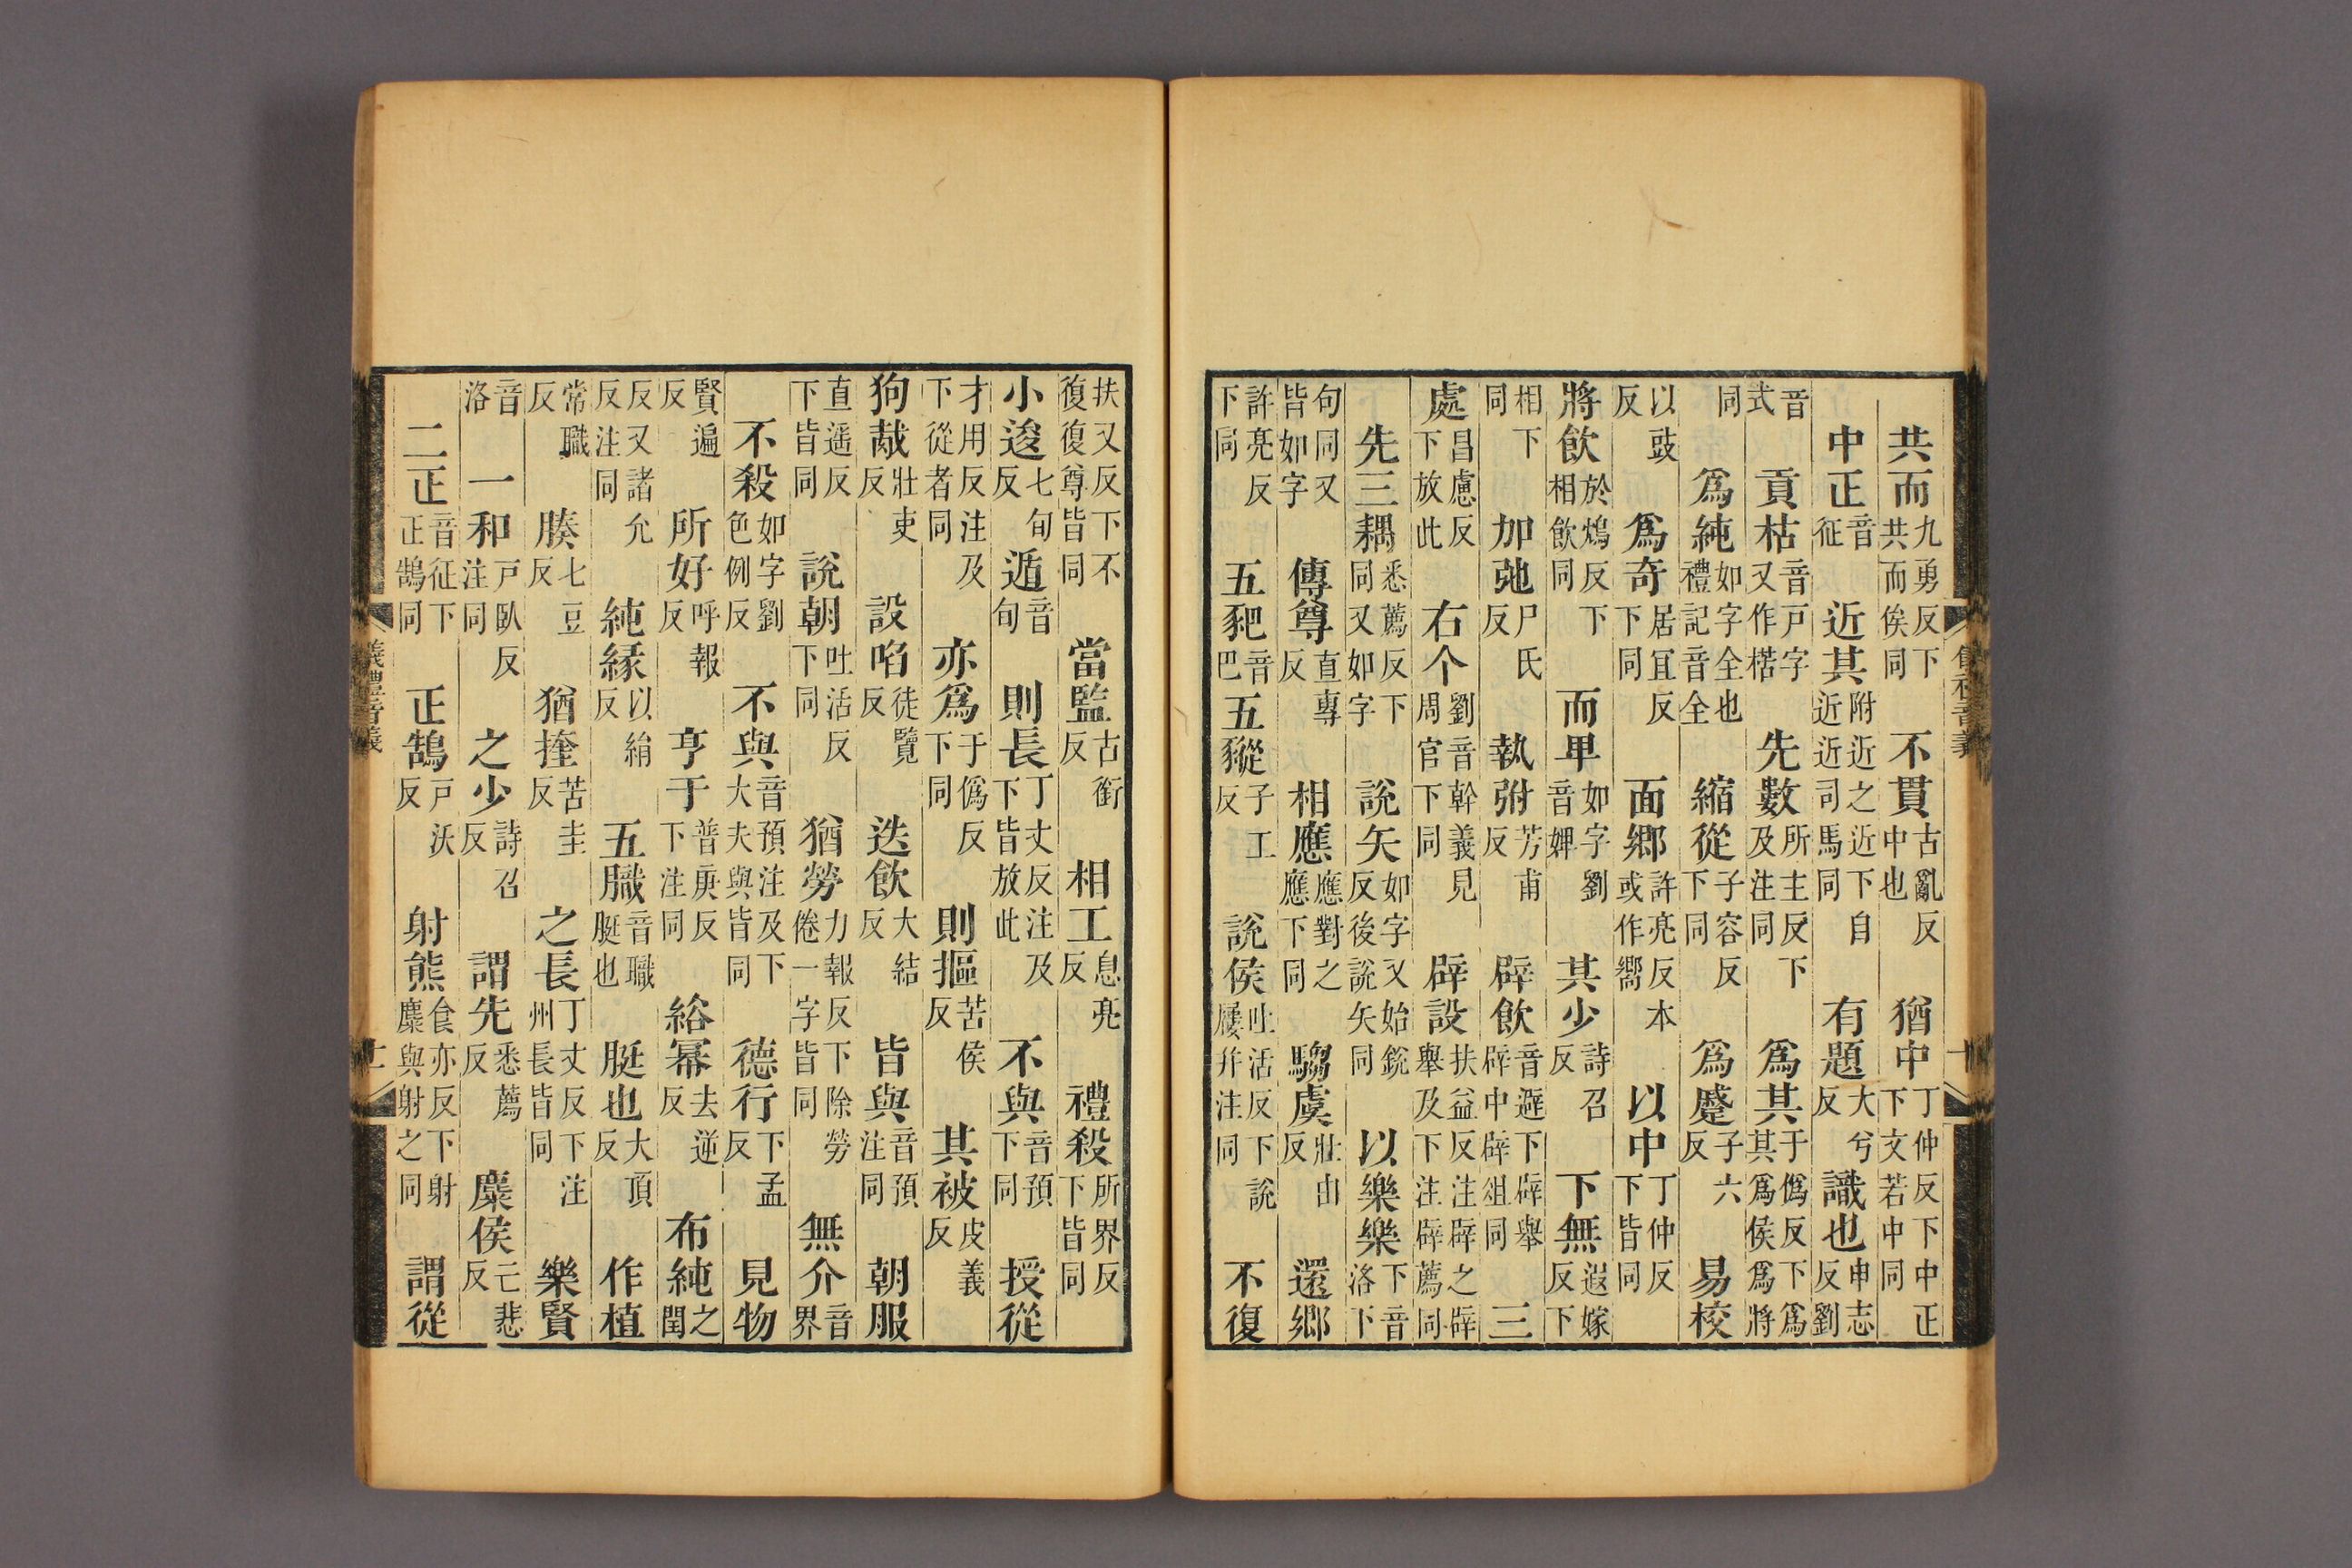 共而九勇反下共而侯同不貫古亂反中也猶中丁仲反下中正下文若中同
中正音征近其附近之近下自近近司馬同有題大兮反識也申志反劉
音式貢枯音戶字又作楛先數所主反下及注同爲其于僞反下爲其爲侯爲將
同爲純如字全也禮記音全縮從子容反下同爲蹙子六反易校
以豉反爲奇居宜反下同面鄉許亮反本或作嚮以中丁仲反下皆同
將飲於鴆反下相飲同而畢如字劉音婢其少詩召反下無遐嫁反下
相下同加弛尸氏反執弣芳甫反辟飲音避下辟舉辟中辟俎同三
處昌慮反下放此右个劉音幹義見周官下同辟設扶益反注辟之辟舉及下注辟薦同
先三耦悉薦反下同又如字說矢如字又始銳反後說矢同以樂樂下音洛下
句同又皆如字傳尊直專反相應應對之應下同騶虞壯由反還鄉
許亮反下同五豝音巴五豵子工反說侯吐活反下說屨并注同不復
扶又反下不復復尊皆同當監古銜反相工息亮反禮殺所界反下皆同
小逡七旬反遁音旬則長丁丈反注及下皆放此不與音預下同授從
才用反注及下從者同亦爲于僞反下同則摳苦侯反其被皮義反
狗胾壯吏反設啗徒覽反迭飲大結反皆與音預注同朝服
直遥反下皆同說朝吐活反下同猶勞力報反下除勞倦一字皆同無介音界
不殺如字劉色例反不與音預注及下大夫與皆同德行下孟反見物
賢遍反所好呼報反亨于普庚反下注同綌冪去逆反布純之閏
反又諸允反注同純緣以絹反五膱音職脡也脡也大頂反作植
常職反腠七豆反猶挃苦圭反之長丁丈反下注州長皆同樂賢
音洛一和戶臥反注同之少詩召反謂先悉薦反麋侯亡悲反
二正音征下正鵠同正鵠戶沃反射熊食亦反下射麋與射之同謂從
義禮音義
十一